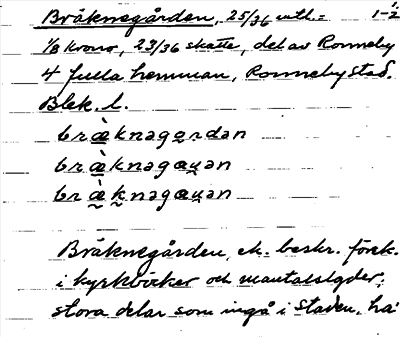 Bräknegården, 25/36 mtl. = 1-½
1/8 krono, 23/36 skatte, del av Ronneby
4 fulla hemman, Ronneby stad.
Blek. l.
bræ̀knəgɑrdən
bræ̀knəgɑu̯ən
bræ̀knəgɑu̯ən
Bräknegården, ek. beskr. förek.
i kyrkböcker och mantalslgder;
stora delar som ingå i staden, ha